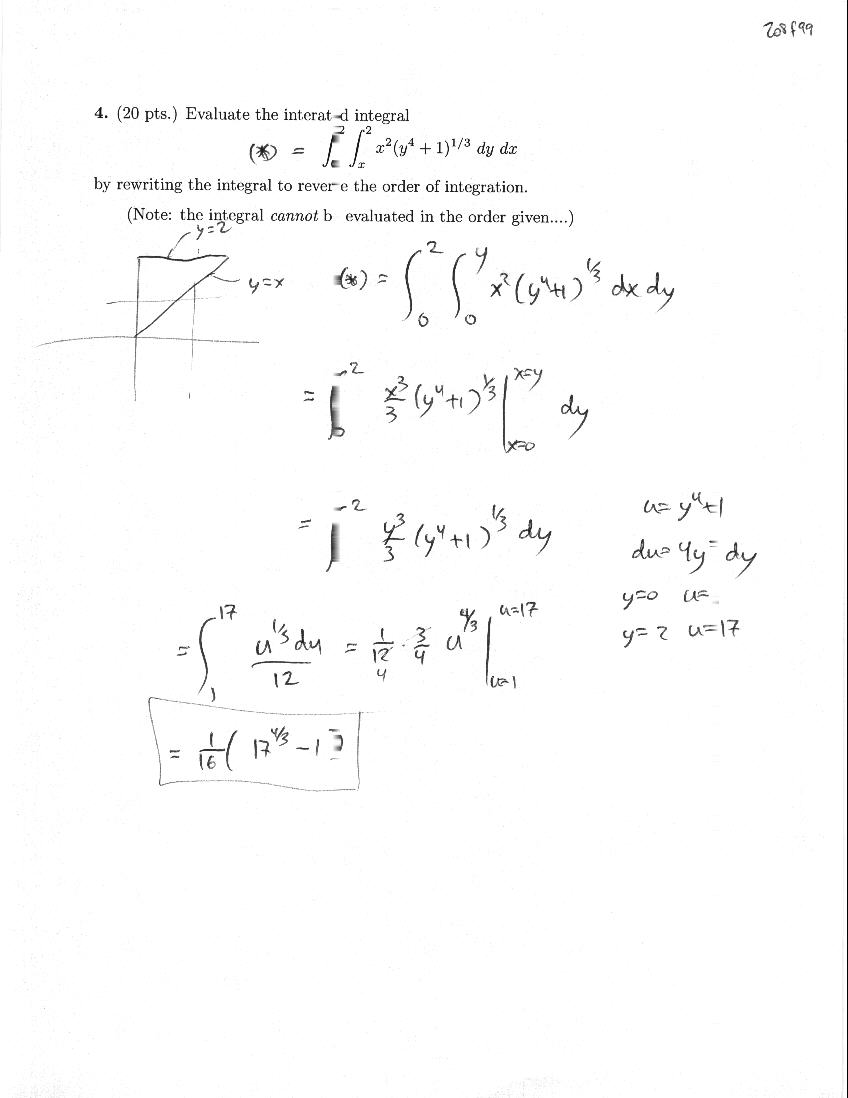 208f99
4. (20 pts.) Evaluate the interat d integral
(*) = ∫ ∫_x^2 x²(y⁴ + 1)^{1/3} dy dx
by rewriting the integral to rever e the order of integration.
(Note: the integral cannot b evaluated in the order given....)
y=2
y=x
(*) = ∫_0^2 ∫_0^y x²(y⁴+1)^{1/3} dx dy
= ∫_0^2 x³/3 (y⁴+1)^{1/3} |_{x=0}^{x=y} dy
= ∫^2 y³/3 (y⁴+1)^{1/3} dy
u= y⁴+1
du= 4y dy
y=0 u=
y=2 u=17
= ∫_1^17 u^{1/3} du/12 = 1/12 · 3/4 u^{4/3} |_{u=1}^{u=17}
4
= 1/16 ( 17^{4/3} - 1